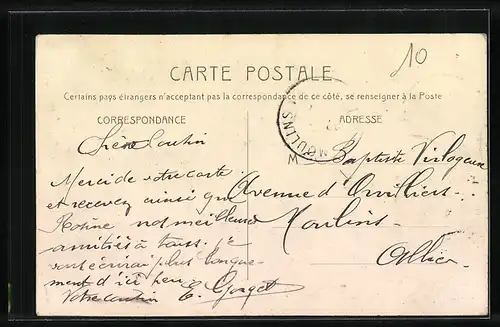 10
CARTE POSTALE
Certains pays étrangers n'acceptant pas la correspondance de ce côté, se renseigner à la Poste
CORRESPONDANCE
Cousin
Merci de votre carte
et recevez ainsi que
nos meilleures
amitiés à tous. Je
vous écrirai plus longue-
ment d'ici peu
Votre cousin
ADRESSE
MOULINS
M Baptiste Virlogeux
Avenue d'Orvilliers
Moulins
Allier